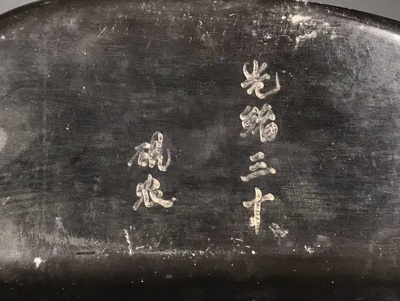 光緒三十
硯農